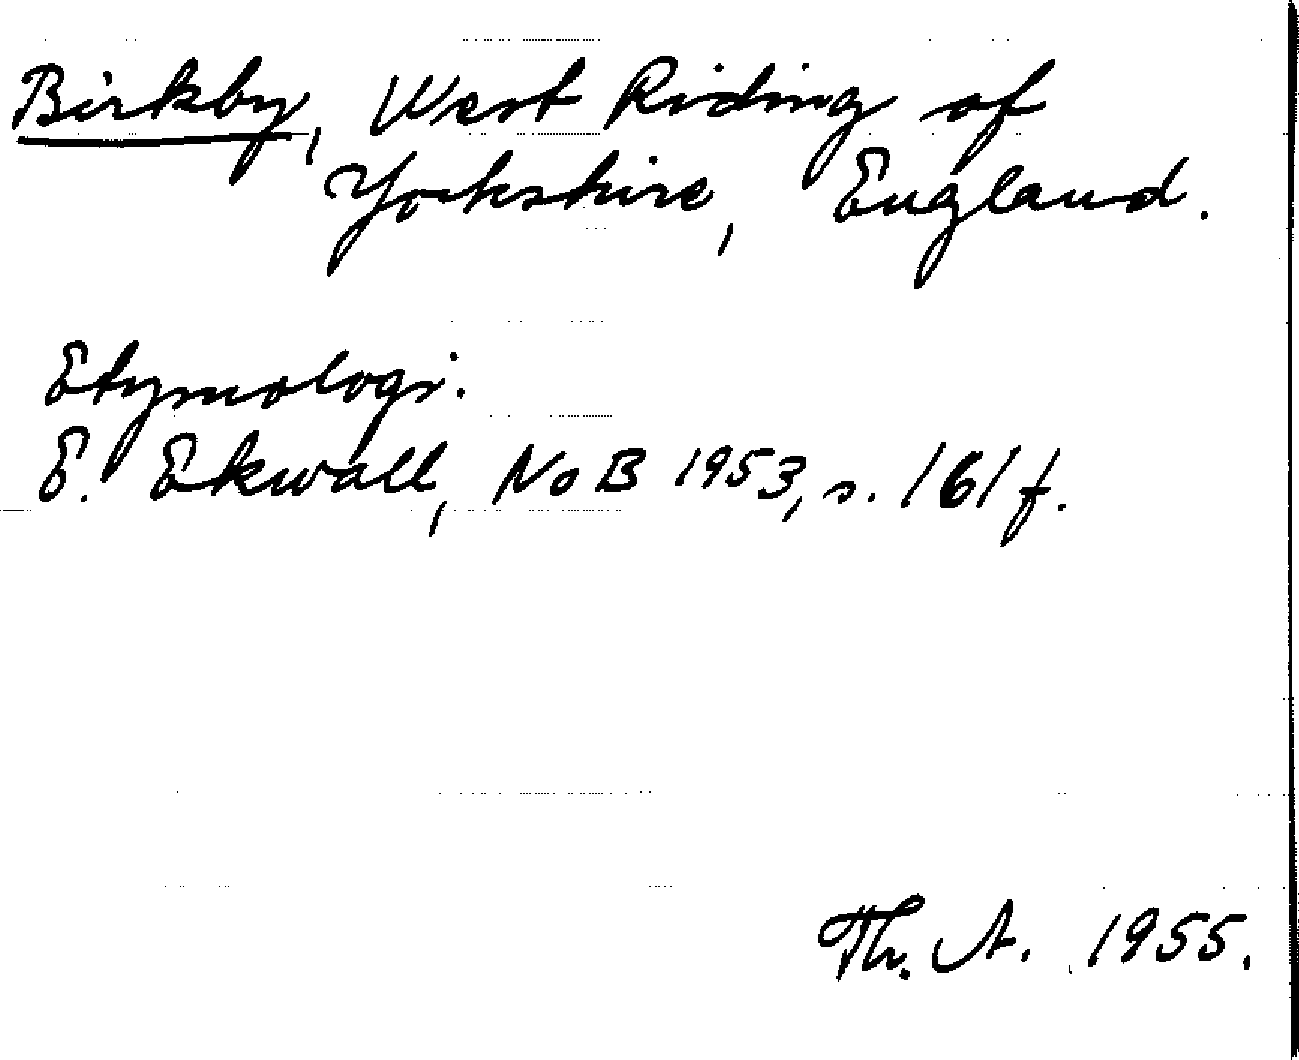 Birkby, West Riding of
Yorkshire, England.
Etymologi.
E. Ekwall, NoB 1953, s. 161 f.
Th. A. 1955.